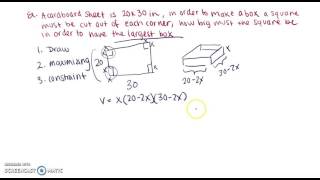 Ex. A caraboard sheet is 20x30 in, in order to make a box a square
must be cut out of each corner, how big must the square be
in order to have the largest box
1. Draw
2. maximizing
3. constraint
x
x
20
x
30
x
20-2x
30-2x
V = x(20-2x)(30-2x)
RECORDED WITH
SCREENCAST-O-MATIC